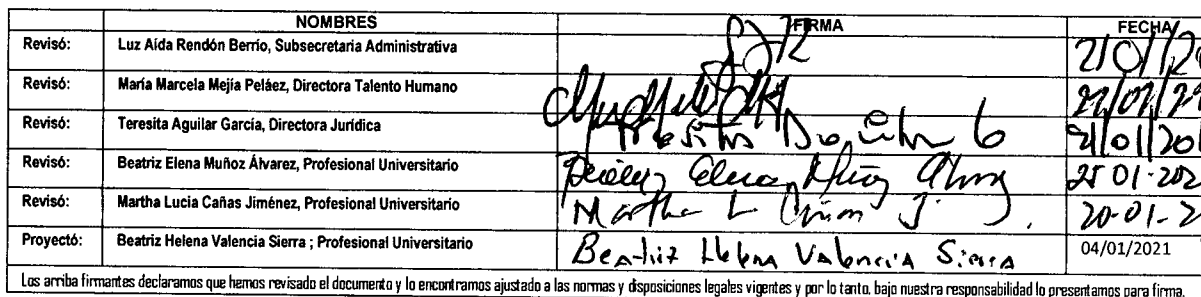 NOMBRES FIRMA FECHA
Revisó: Luz Aída Rendón Berrío, Subsecretaria Administrativa
Revisó: María Marcela Mejía Peláez, Directora Talento Humano
Revisó: Teresita Aguilar García, Directora Jurídica
Revisó: Beatriz Elena Muñoz Álvarez, Profesional Universitario
Revisó: Martha Lucia Cañas Jiménez, Profesional Universitario Martha L J. 20-01-2
Proyectó: Beatriz Helena Valencia Sierra ; Profesional Universitario Beatriz Helena Valencia Sierra 04/01/2021
Los arriba firmantes declaramos que hemos revisado el documento y lo encontramos ajustado a las normas y disposiciones legales vigentes y por lo tanto, bajo nuestra responsabilidad lo presentamos para firma.